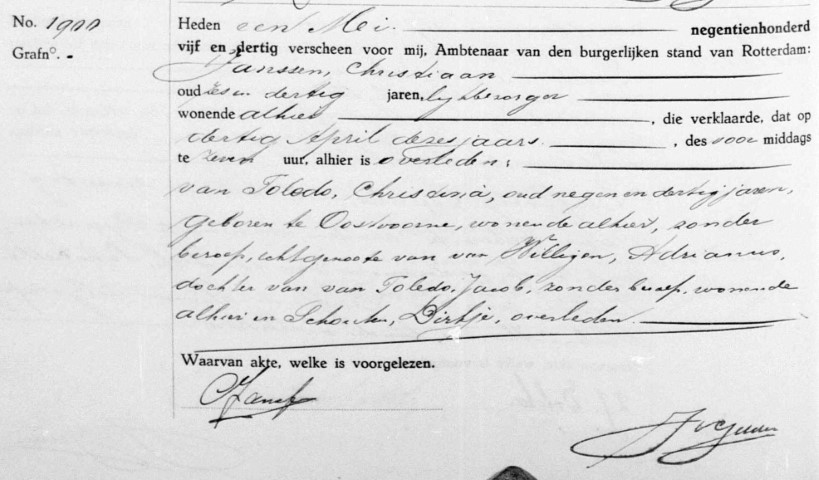 No. 1900
Grafn°. -
Heden een Mei. negentienhonderd
vijf en dertig verscheen voor mij, Ambtenaar van den burgerlijken stand van Rotterdam:
Janssen, Christiaan
oud zes en dertig jaren, lijkbezorger
wonende alhier, die verklaarde, dat op
dertig April dezes jaars, des voor middags
te zeven uur, alhier is overleden:
van Toledo, Christina, oud negen en dertig jaren,
geboren te Oostvoorne, wonende alhier, zonder
beroep, echtgenoote van van Willigen, Adrianus,
dochter van van Toledo, Jacob, zonder beroep, wonende
alhier en Schouten, Dirkje, overleden.
Waarvan akte, welke is voorgelezen.